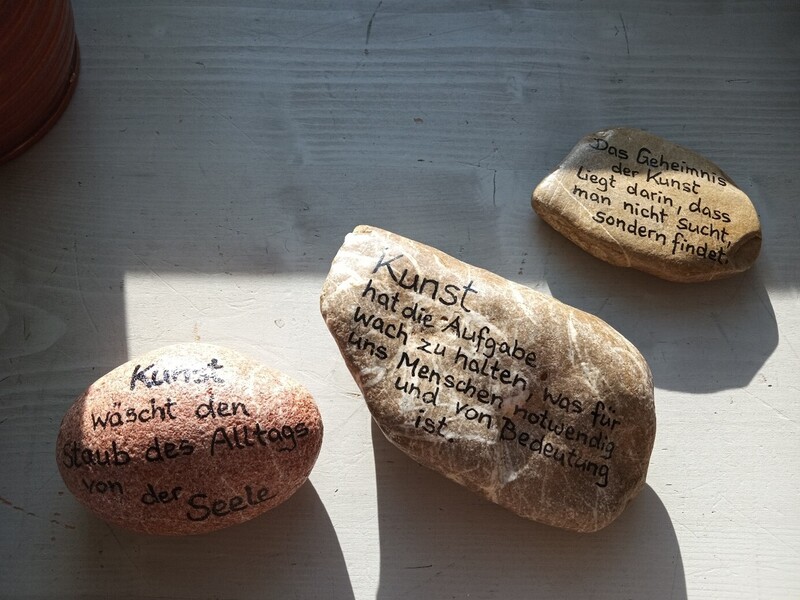 Kunst
wäscht den
Staub des Alltags
von der Seele
Kunst
hat die Aufgabe
wach zu halten, was für
uns Menschen notwendig
und von Bedeutung
ist.
Das Geheimnis
der Kunst
liegt darin, dass
man nicht sucht,
sondern findet.